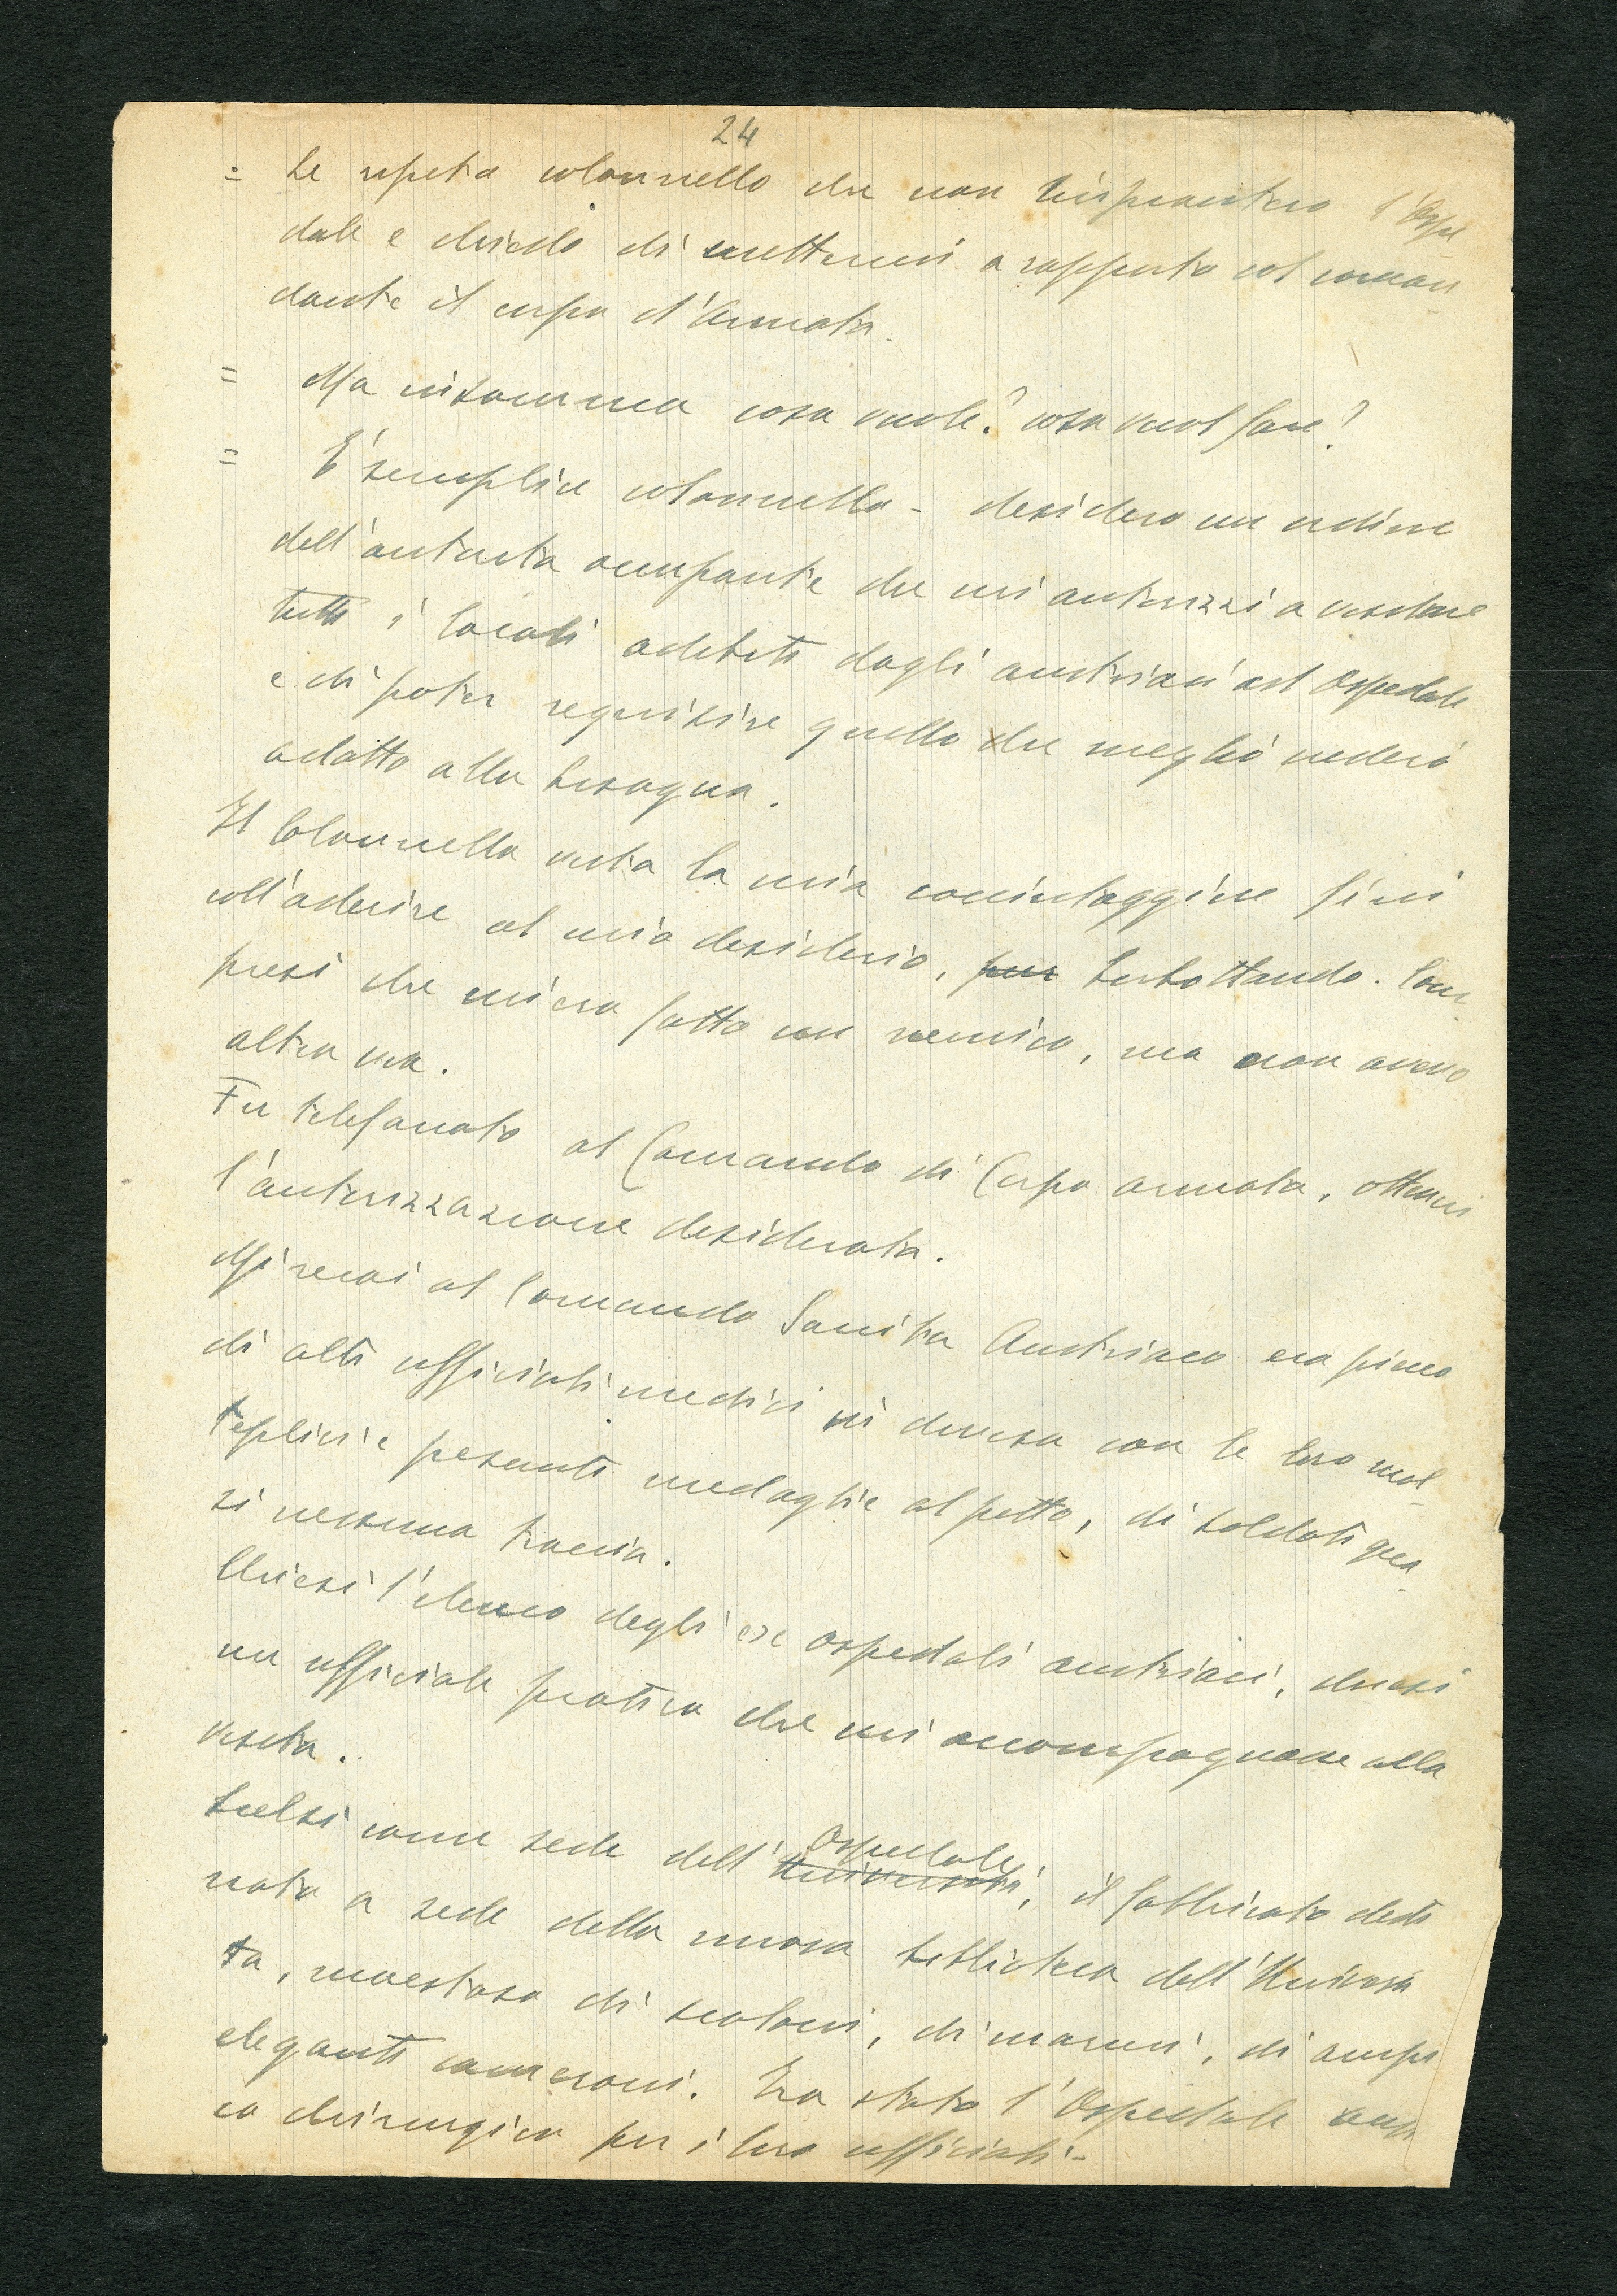 24
= Le ripeto colonnello che non impianterò l'Ospe
dale e chiedo di mettermi a rapporto col coman
dante il corpo d'Armata.
= Ma insomma cosa vuole? cosa vuol fare?
= E' semplice colonnello - desidero un ordine
dell'autorità occupante che mi autorizzi a visitare
tutti i locali adibiti dagli austriaci ad Ospedale
e di poter requisire quello che meglio vederò
adatto alla bisogna.
Il Colonnello vista la mia cocciutaggine finì
coll'aderire al mio desiderio, pur borbottando. Com
presi che mi ero fatto un nemico, ma non avevo
altra via.
Fu telefonato al Comando di Corpo armata, ottenni
l'autorizzazione desiderata.
Mi recai al Comando Sanità Austriaco era pieno
di alti ufficiali medici in divisa con le loro mol
teplici e pesanti medaglie al petto, di soldati qua
si nessuna traccia.
Chiesi l'elenco degli ex ospedali austriaci, chiesi
un ufficiale pratico che mi accompagnasse alla
visita.
Scelsi come sede dell'Università, Ospedale il fabbricato desti
nato a sede della nuova biblioteca dell'Universi
tà, maestoso di scaloni, di marmi, di ampi
eleganti cameroni. Era stato l'Ospedale
co chirurgico per i loro ufficiali.-